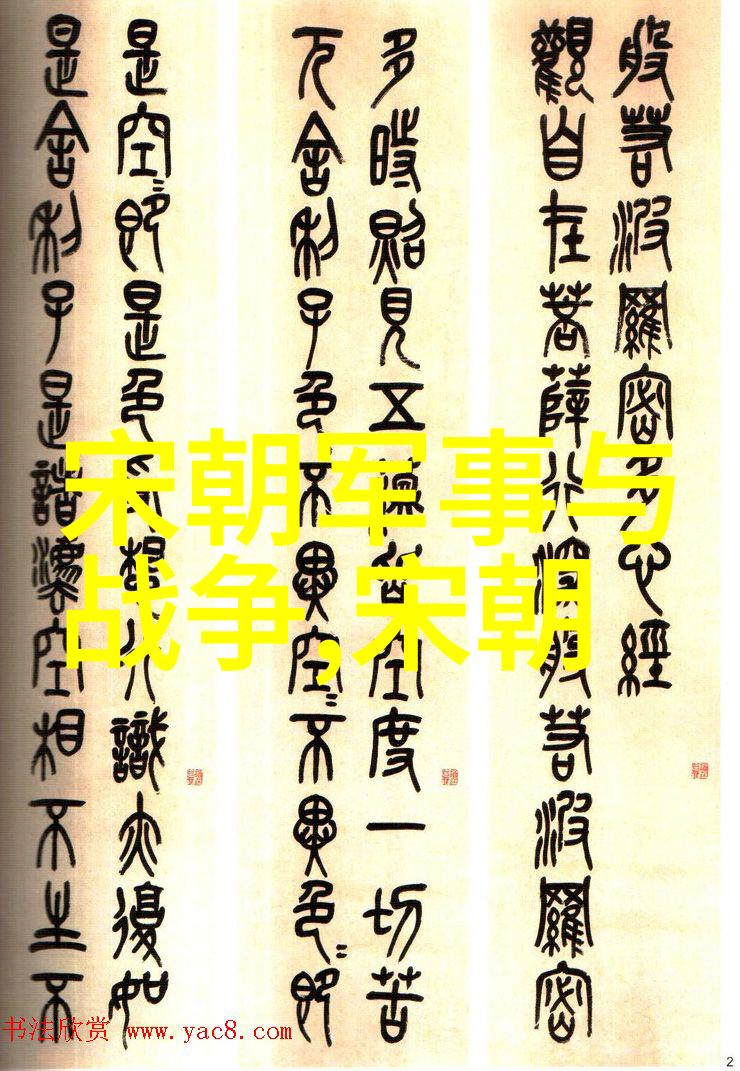 般若波羅密多心經
觀自在菩薩行深般若波羅密
多時照見五蘊皆空度一切苦
厄舍利子色不異空〻不異色〻即
是空〻即是色受想行識亦復如
是舍利子是諸法空相不生不
宋朝军事与
战争,宋朝
书法欣赏 www.yac8.com
2